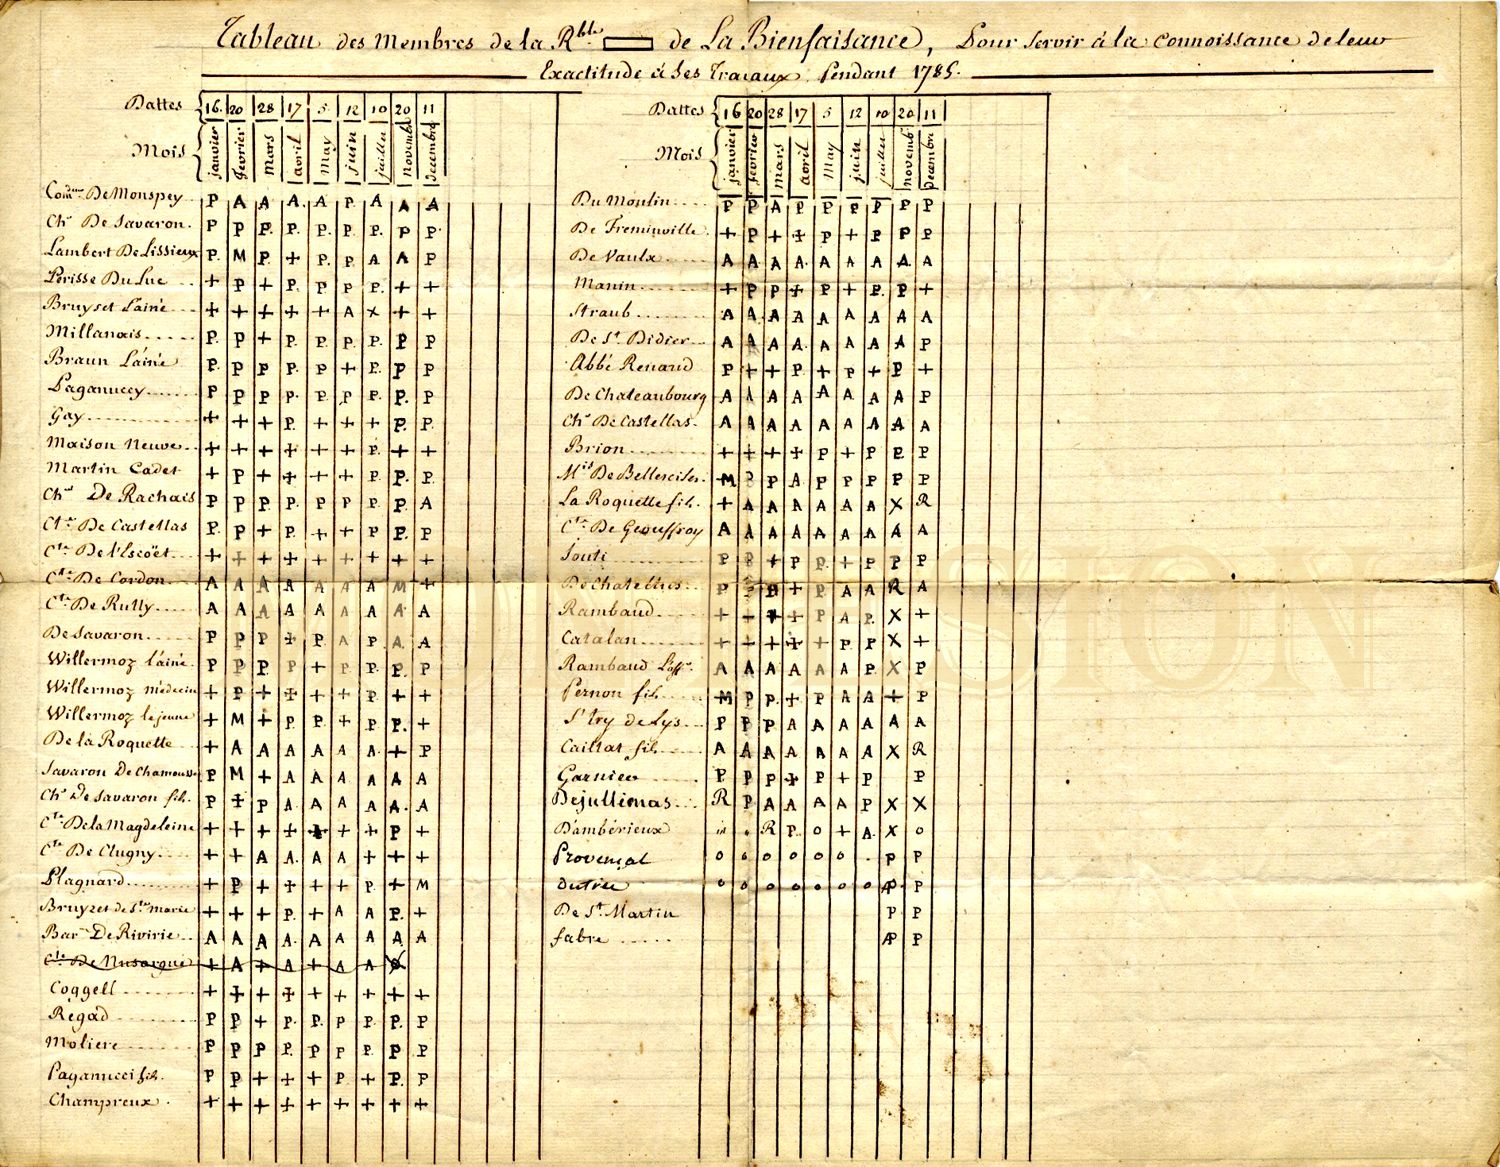 Tableau des Membres de la Rble de La Bienfaisance, Pour servir à la connoissance de leur
Exactitude à ses Travaux Pendant 1785.
Dattes 16. 20 28 17 5 12 10 20 11
Mois janvier fevrier mars avril may juin juillet novemb decembre
Comdeur De Monspey P A A A. A P. A A A
Chr De Savaron. P P P. P. P. P. P. P P.
Lambert De Lissieux P. M P. + P. P. A A P
Périsse Du Luc + P + P. P P. P. + +
Bruyset L'ainé + + + + + A x + +
Millanois P. P + P. P. P. P. P P
Braun L'ainé P. P P. P. P + P. P P
Paganuccy P P P P. P P P. P. P
Gay + + + P. + + + P. P
Maison Neuve + + + + + + P. + +
Martin Cadet + P + + + + P. P. P
Chr De Rachais P P P. P. P P P. P. A
Cte De Castellas P. P + P. + + P. P. P
Cte De l'Escoët + + + + + + + + +
Cte De Cordon A A A A A A A M +
Cte De Rully A A A A A A A A A
De Savaron P P P + P. A P. A. A
Willermoz l'ainé P P P. P + P. P. P. P
Willermoz médecin + P + + + + P. + +
Willermoz le jeune + M + P. P. + P. P. +
De la Roquette + A A A A A A. + P
Savaron De Chamousset P M + A A A A A A
Chr De Savaron fils. P + P A. A A A A. A
Cte De la Magdeleine + + + + + + + P +
Cte De Clugny + + A A. A A + + +
Plagnard + P + + + + P. + M
Bruyzet de Ste marie + + + P. + A A P. +
Baron De Rivirie A A A A. A A A A A
Cte De Nusargue + A + A + A A
Coggell + + + + + + + + +
Regad P P + P. P. P P. P. P
Moliere P P P P. P P P. P P
Paganucci fils. P P + + + P. + P. P
Champreux + + + + + + + + +
Dattes 16 20 28 17 5 12 10 20 11
Mois janvier fevrier mars avril May juin juillet novemb decembre
Du Moulin P P A P P P P P P
De Freminville. + P + + P + P P P
De Vaulx A A A A. A A A A. A
Manin + P P + P + P. P +
Straub A A A A A A A A A
De St Didier A A A A. A A A A P
Abbé Renaud P + + P + P + P +
De Chateaubourg A A A A A A A A P
Chr De Castellas A A A A A A A A A
Brion + + + + P + P P. P
Mis De Bellerciser + P A. P P P P P
La Roquette fils. + A A A A A A X R
Cte De Geouffroy A A A A A A A A A
Souti P P + P P. + P P P
De Chatellus P P + P A A R A
Rambaud + + + + P A P. X +
Catalan + + + + + P P X +
Rambaud A A A A A A P. X P
Pernon fils. P P. + P A A + P
St Try de Lys P P P. A A A A A A
Caillat fils A A A A A A A X R
Garnier P P P + P + P P
Dejullienas R P A A A A P X X
Dambérieux o R P. o + A. X o
Provençal o o o o o o . P P
dutrée o o o o o o o AP P
De St Martin P P
fabre AP P